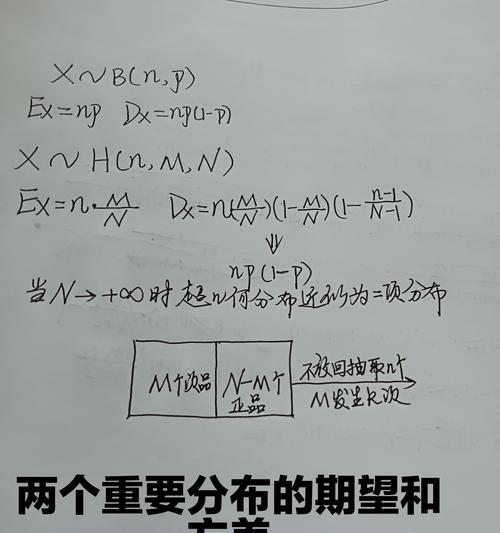 X～B(n,p)
Ex=np Dx=np(1-p)
X～H(n,M,N)
Ex=n·M/N Dx=n(M/N)(1-M/N)(1-(n-1)/(N-1))
⇓
np(1-p)
当N→+∞时超几何分布近似为二项分布
M个次品
N-M个
正品
不放回抽取n个
M发生k次
两个重要分布的期望和
方差